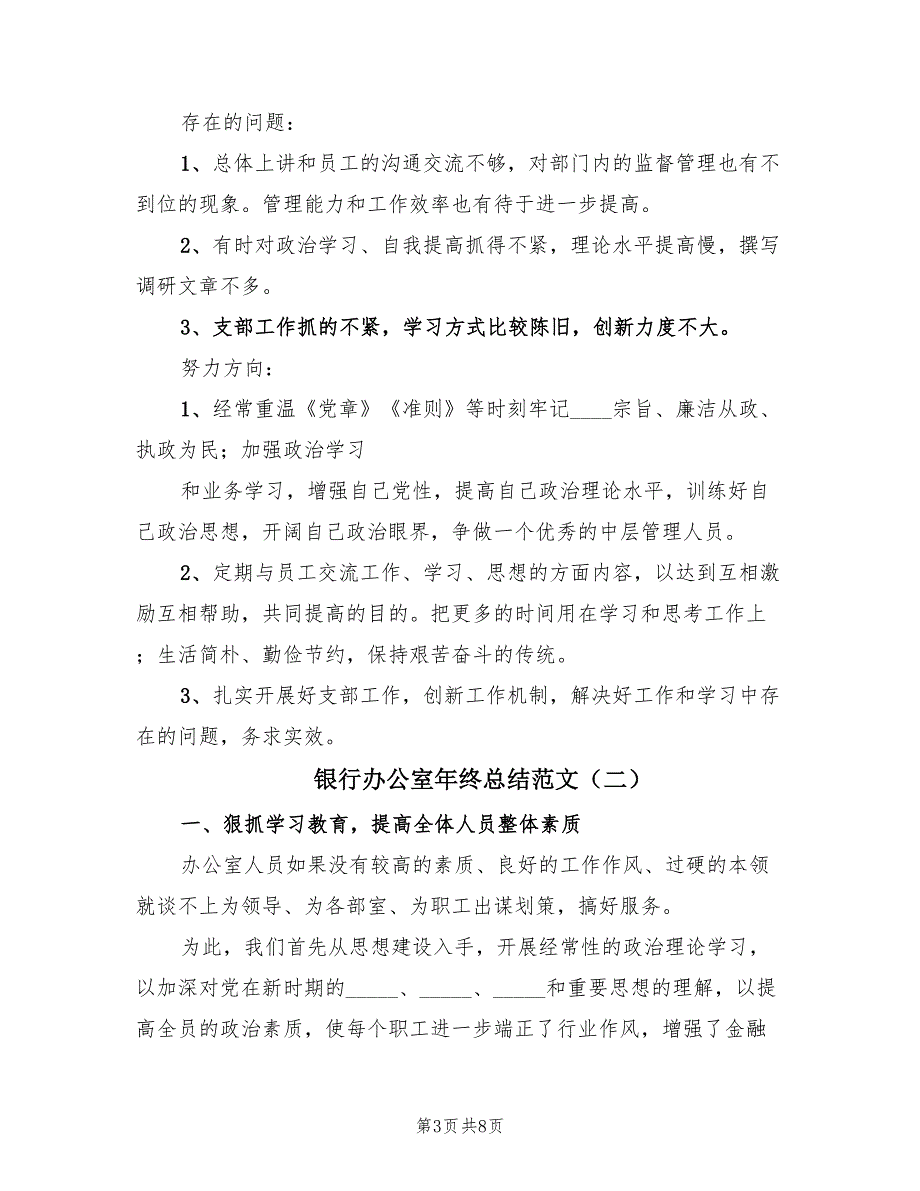 存在的问题：
1、总体上讲和员工的沟通交流不够，对部门内的监督管理也有不
到位的现象。管理能力和工作效率也有待于进一步提高。
2、有时对政治学习、自我提高抓得不紧，理论水平提高慢，撰写
调研文章不多。
3、支部工作抓的不紧，学习方式比较陈旧，创新力度不大。
努力方向：
1、经常重温《党章》《准则》等时刻牢记____宗旨、廉洁从政、
执政为民；加强政治学习
和业务学习，增强自己党性，提高自己政治理论水平，训练好自
己政治思想，开阔自己政治眼界，争做一个优秀的中层管理人员。
2、定期与员工交流工作、学习、思想的方面内容，以达到互相激
励互相帮助，共同提高的目的。把更多的时间用在学习和思考工作上
；生活简朴、勤俭节约，保持艰苦奋斗的传统。
3、扎实开展好支部工作，创新工作机制，解决好工作和学习中存
在的问题，务求实效。
银行办公室年终总结范文（二）
一、狠抓学习教育，提高全体人员整体素质
办公室人员如果没有较高的素质、良好的工作作风、过硬的本领
就谈不上为领导、为各部室、为职工出谋划策，搞好服务。
为此，我们首先从思想建设入手，开展经常性的政治理论学习，
以加深对党在新时期的_____、_____、_____和重要思想的理解，以提
高全员的政治素质，使每个职工进一步端正了行业作风，增强了金融
第3页共8页